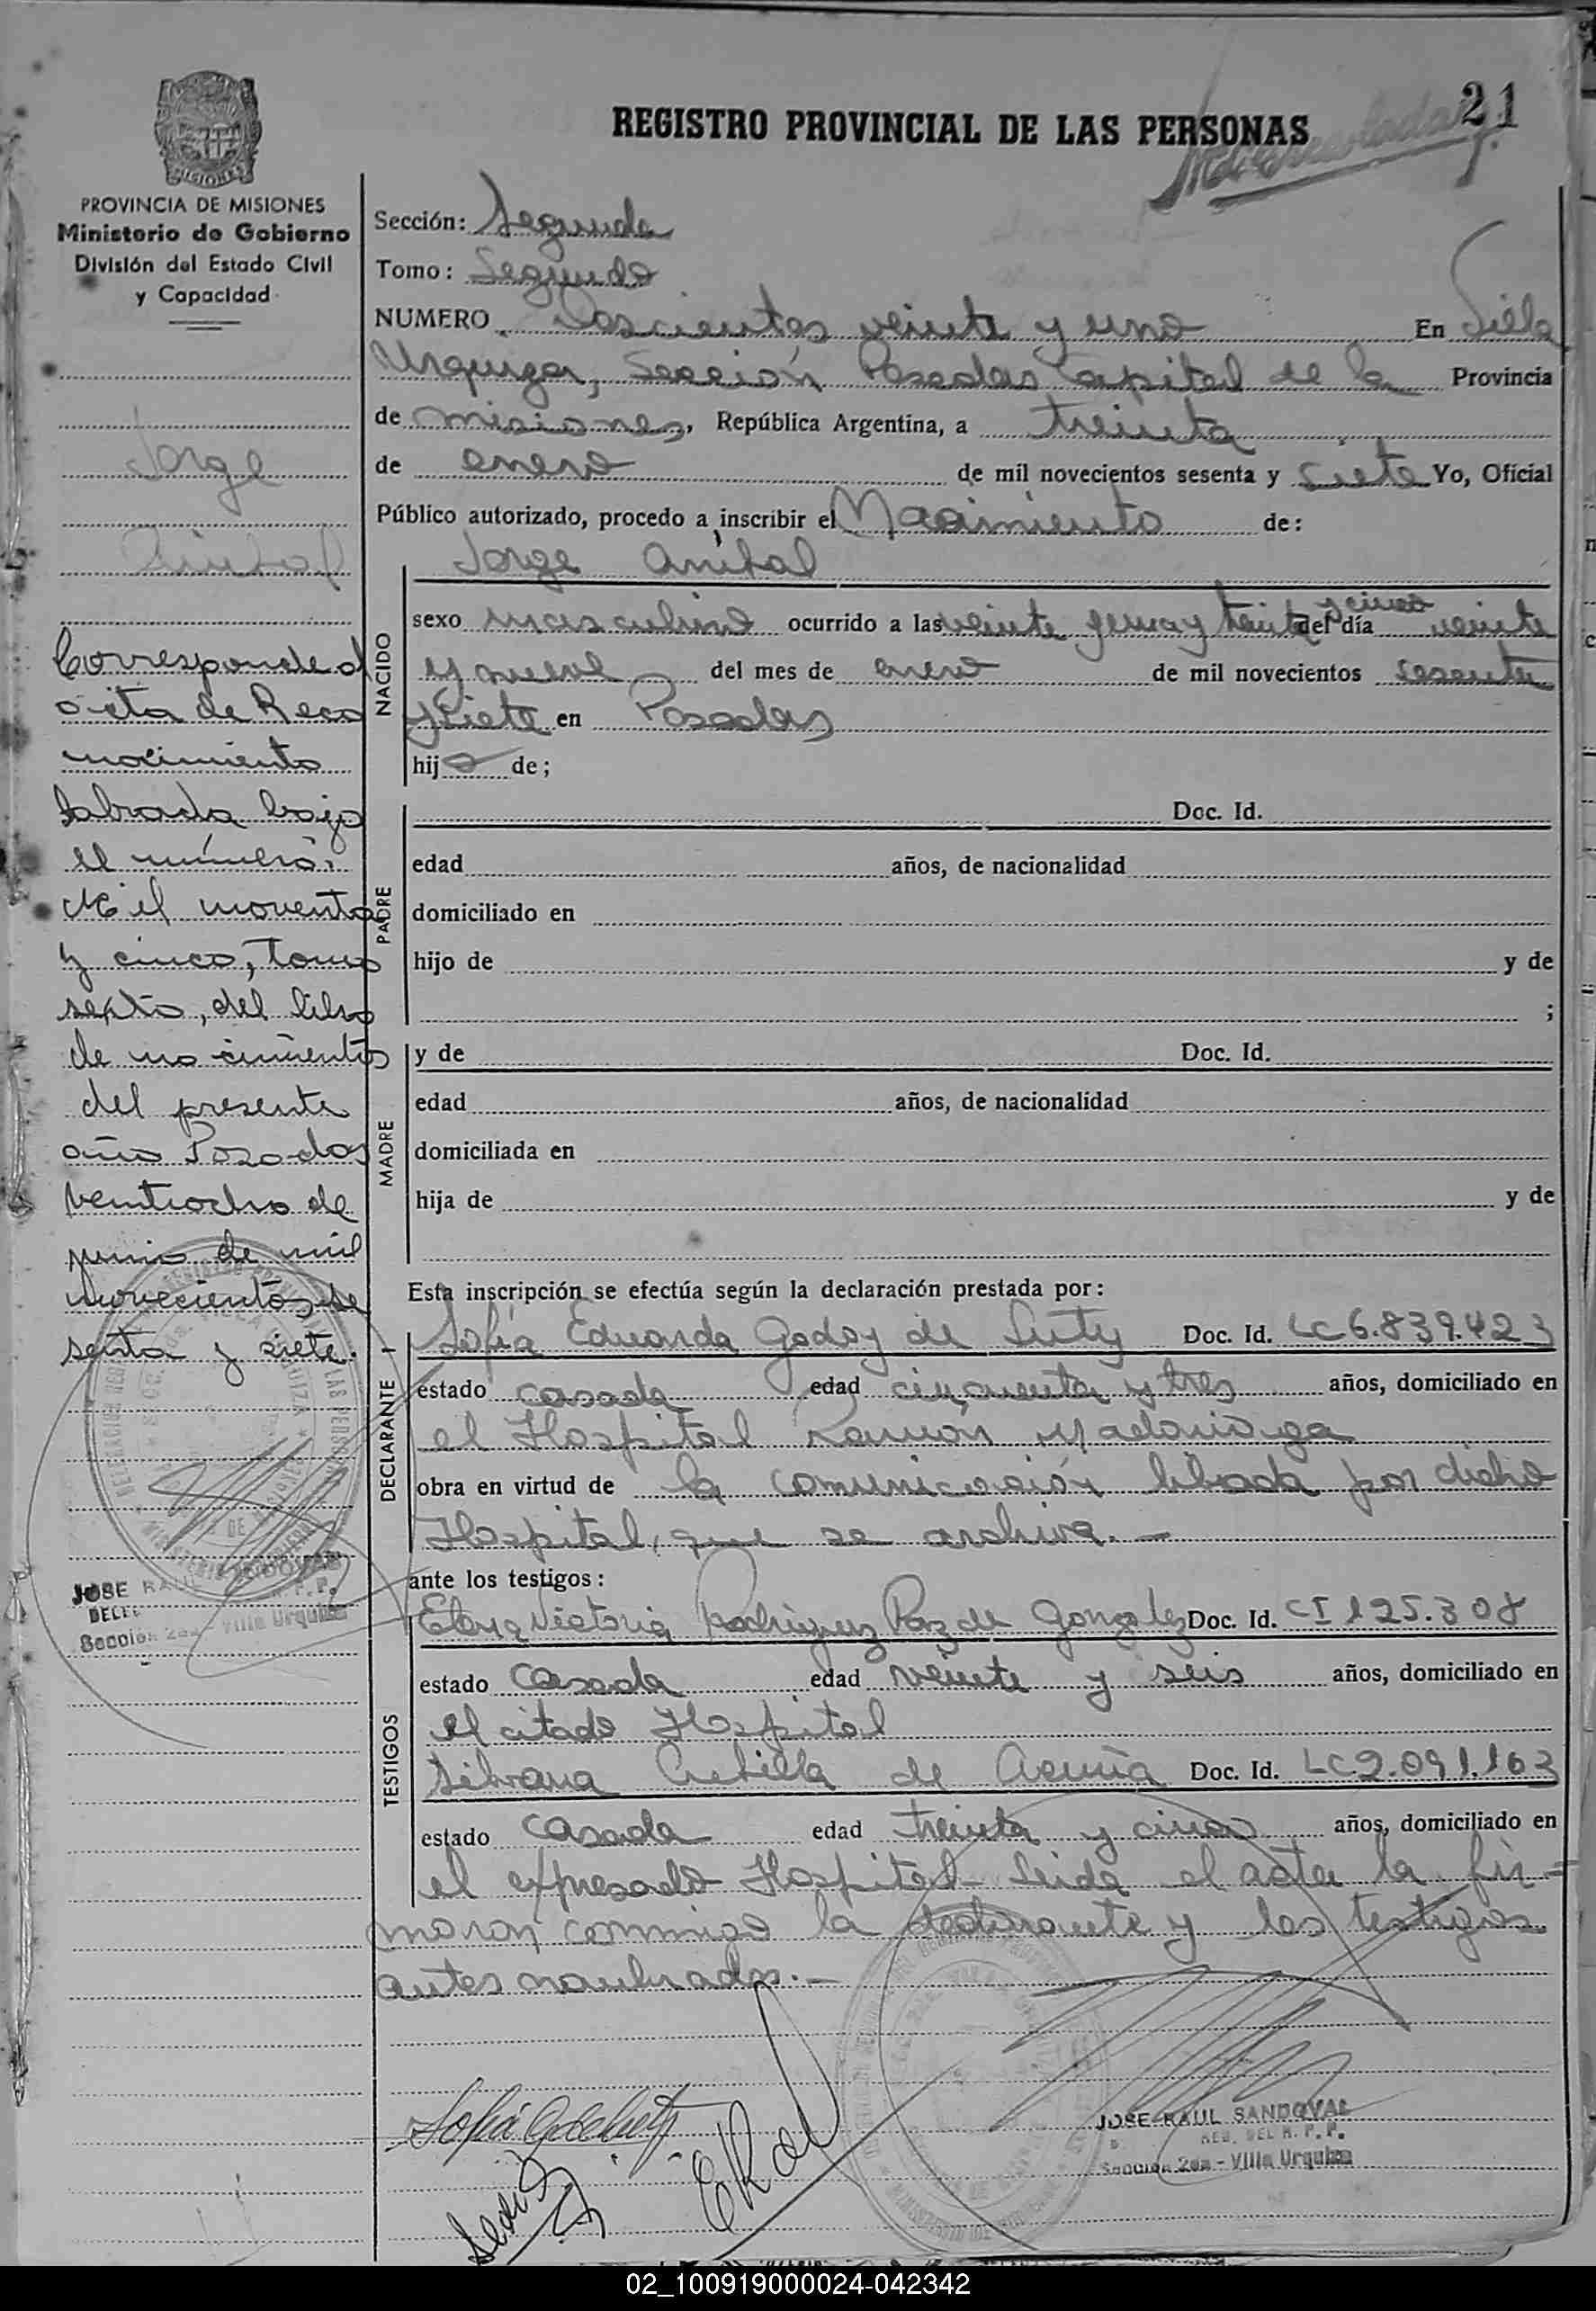 21
REGISTRO PROVINCIAL DE LAS PERSONAS
MISIONES
PROVINCIA DE MISIONES
Ministerio de Gobierno
División del Estado Civil
y Capacidad
Jorge
Anibal
Corresponde al
acta de Reco
nocimiento
labrada bajo
el número:
Mil noventa
y cinco, tomo
sexto, del libro
de nacimientos
del presente
año Posadas
veintiocho de
junio de mil
novecientos se
senta y siete.
JOSE RAUL SANDOVAL
Sección 2da - Villa Urquiza
Sección: Segunda
Tomo: Segundo
NUMERO Doscientos veinte y uno En Villa
Urquiza, Sección Posadas Capital de la Provincia
de Misiones, República Argentina, a treinta
de enero de mil novecientos sesenta y siete Yo, Oficial
Público autorizado, procedo a inscribir el Nacimiento de:
Jorge Anibal
NACIDO
sexo masculino ocurrido a las veinte horas y treinta y cinco del día veinte
y nueve del mes de enero de mil novecientos sesenta
y siete en Posadas
hijo de;
PADRE
Doc. Id.
edad años, de nacionalidad
domiciliado en
hijo de y de
;
MADRE
y de Doc. Id.
edad años, de nacionalidad
domiciliada en
hija de y de
Esta inscripción se efectúa según la declaración prestada por:
DECLARANTE
Sofía Eduarda Godoy de Doc. Id. LC 6.839.423
estado casada edad cincuenta y tres años, domiciliado en
el Hospital Ramón Madariaga
obra en virtud de la comunicación librada por dicho
Hospital, que se archiva.-
ante los testigos:
TESTIGOS
Elena Victoria Rodriguez Paz de Gonzalez Doc. Id. CI 125.308
estado Casada edad veinte y seis años, domiciliado en
el citado Hospital
Silvana de Acuña Doc. Id. LC 2.091.163
estado Casada edad treinta y cinco años, domiciliado en
el expresado Hospital- Leida el acta la fir-
maron conmigo la declarante y los testigos
antes nombrados.-
JOSE RAUL SANDOVAL
Sección 2da - Villa Urquiza
02_100919000024-042342